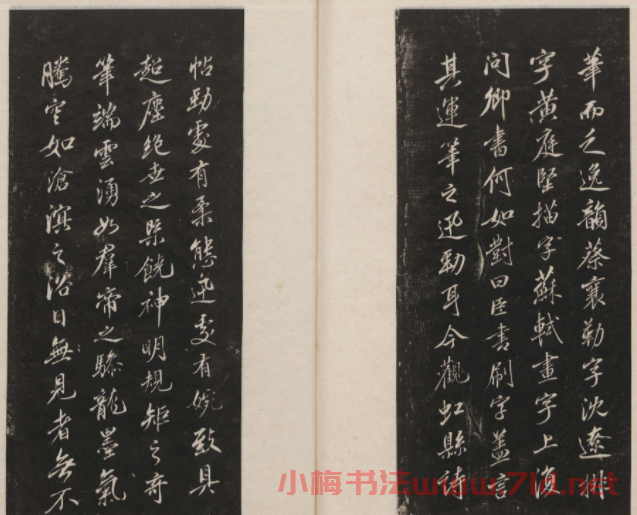 華而乏逸韻蔡襄勒字沈遼排
字黃庭堅描字蘇軾畫字上復
問卿書何如對曰臣書刷字蓋言
其運筆之迅勁耳今觀虹縣詩
帖勁處有柔態迅處有婉致具
超塵絕世之饒神明規矩之奇
筆端雲湧如羣帝之驂龍墨氣
騰空如滄溟之浴日無見者无不
小梅书法www.7ld.net